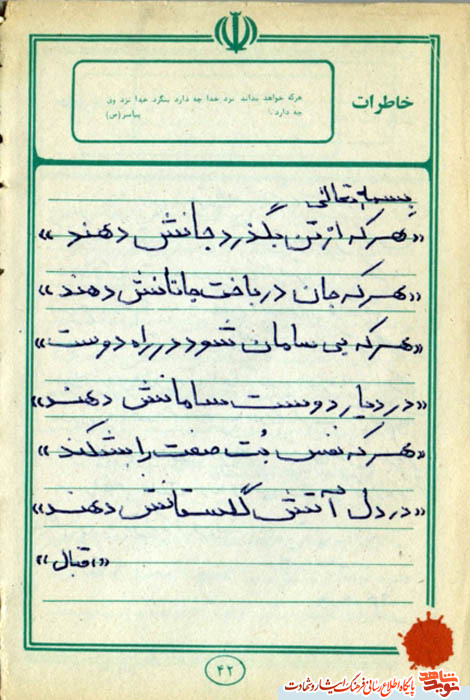 خاطرات
هرکه خواهد بداند نزد خدا چه دارد بنگرد خدا نزد وی
چه دارد.
پیامبر(ص)
بسمه تعالی
«هر که از تن بگذرد جانش دهند»
«هر که جان در باخت جانانش دهند»
«هر که بی سامان شود در راه دوست»
«در دیار دوست سامانش دهند»
«هر که نفس بُت صفت را بشکند»
«در دل آتش گلستانش دهند»
«اقبال»
۴۲
نوید شاهد
پایگاه اطلاع رسانی فرهنگ ایثار و شهادت